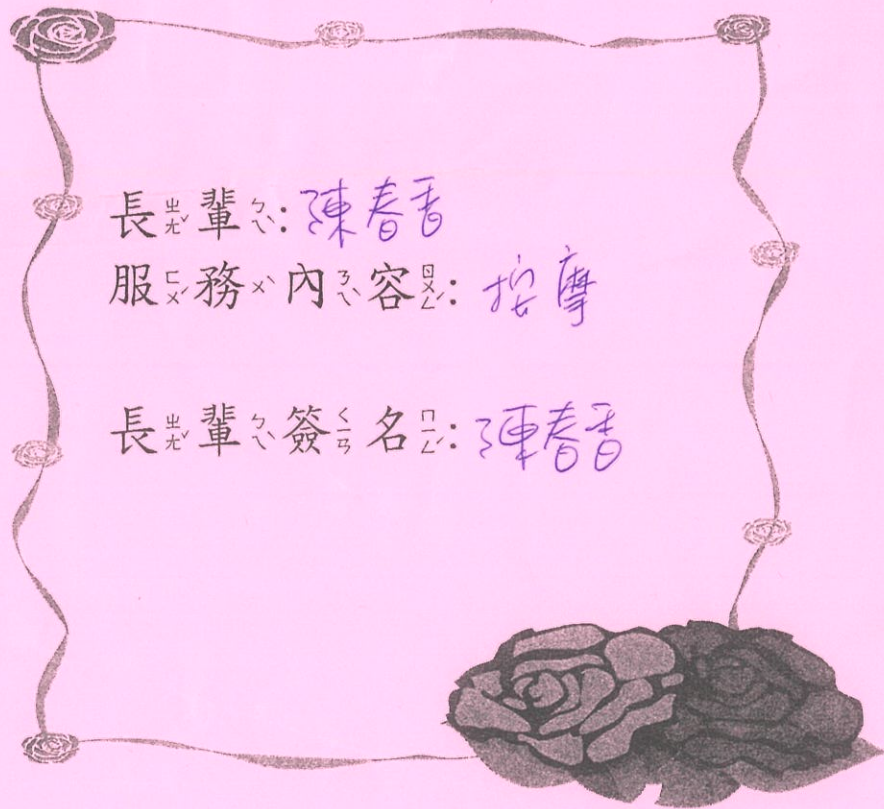 長ㄓㄤˇ輩ㄅㄟˋ:陳春香
服ㄈㄨˊ務ㄨˋ內ㄋㄟˋ容ㄖㄨㄥˊ:按摩
長ㄓㄤˇ輩ㄅㄟˋ簽ㄑㄧㄢ名ㄇㄧㄥˊ:陳春香